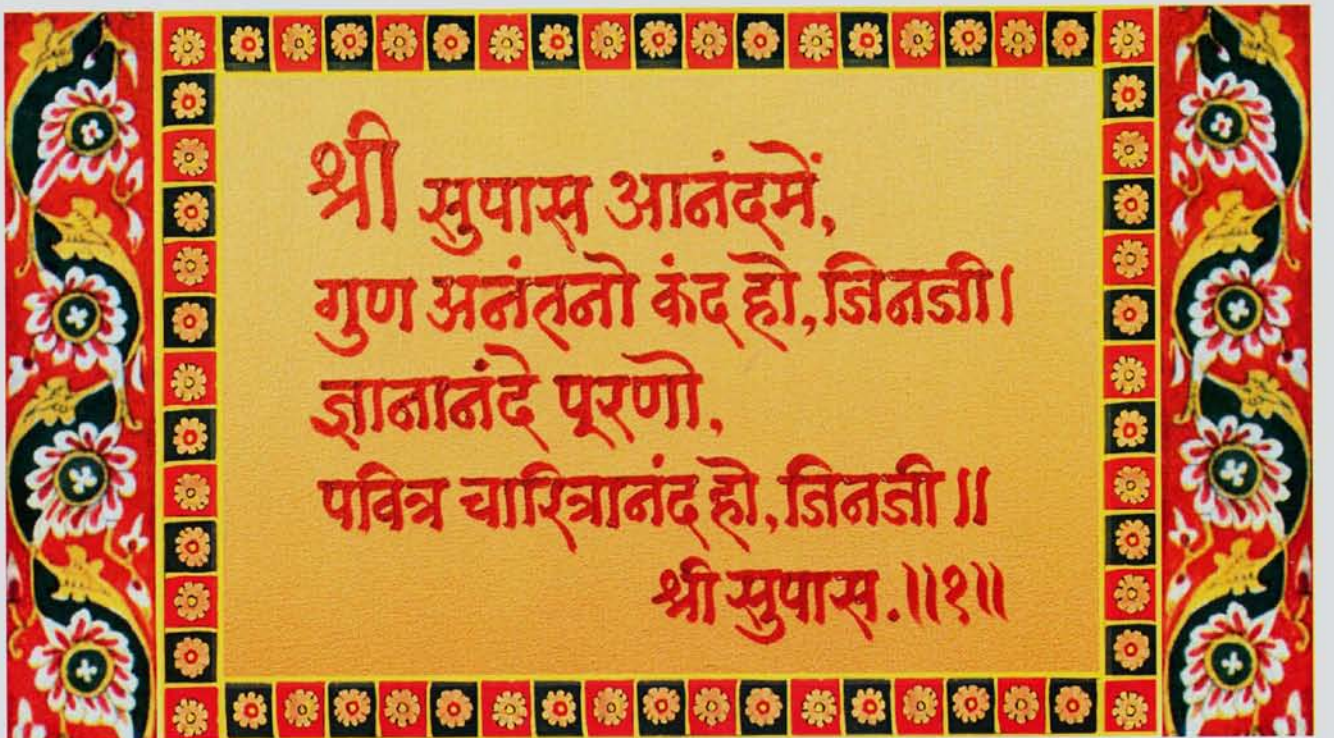 श्री सुपास आनंदमें,
गुण अनंतनो कंद हो, जिनजी।
ज्ञानानंदे पूरणो,
पवित्र चारित्रानंद हो, जिनजी॥
श्री सुपास.॥१॥